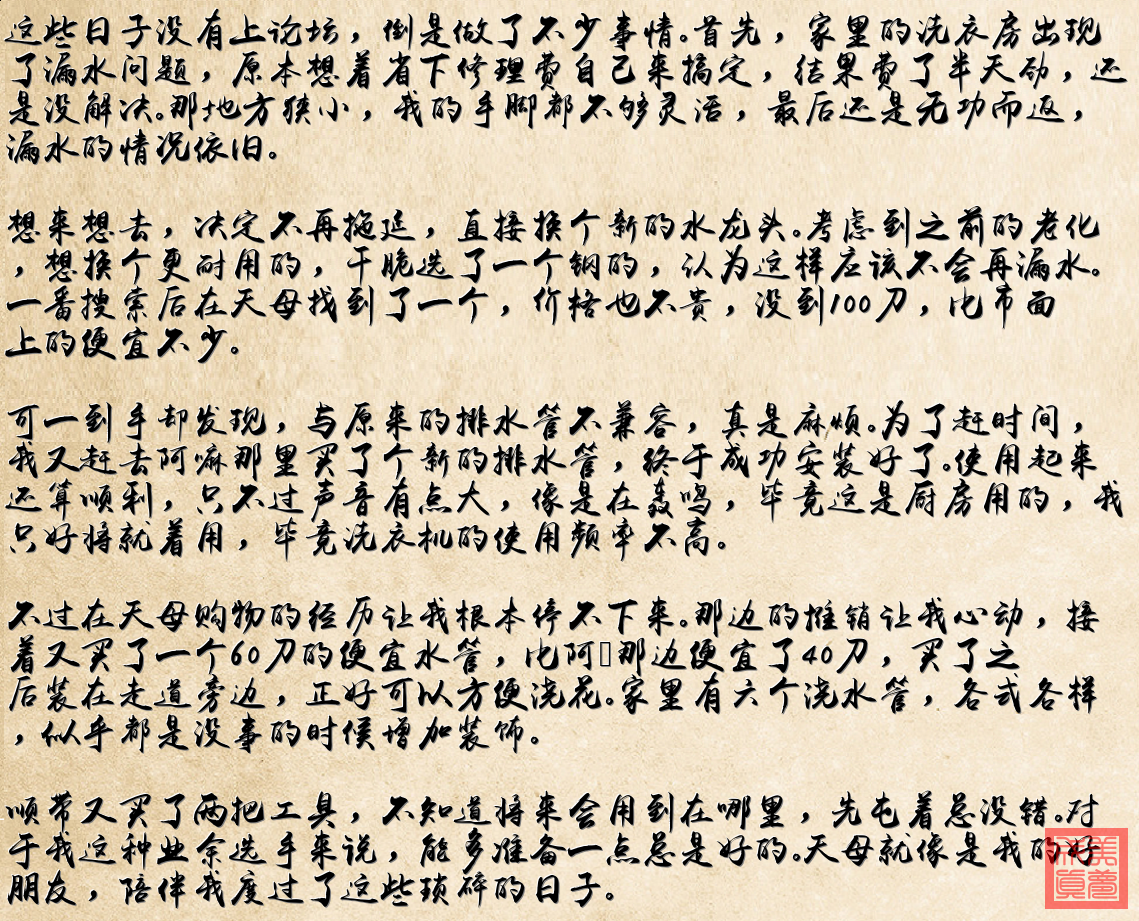 这些日子没有上论坛，倒是做了不少事情。首先，家里的洗衣房出现
了漏水问题，原本想着省下修理费自己来搞定，结果费了半天劲，还
是没解决。那地方狭小，我的手脚都不够灵活，最后还是无功而返，
漏水的情况依旧。
想来想去，决定不再拖延，直接换个新的水龙头。考虑到之前的老化
，想换个更耐用的，干脆选了一个钢的，认为这样应该不会再漏水。
一番搜索后在天母找到了一个，价格也不贵，没到100刀，比市面
上的便宜不少。
可一到手却发现，与原来的排水管不兼容，真是麻烦。为了赶时间，
我又赶去阿嘛那里买了个新的排水管，终于成功安装好了。使用起来
还算顺利，只不过声音有点大，像是在轰鸣，毕竟这是厨房用的，我
只好将就着用，毕竟洗衣机的使用频率不高。
不过在天母购物的经历让我根本停不下来。那边的推销让我心动，接
着又买了一个60刀的便宜水管，比阿那边便宜了40刀，买了之
后装在走道旁边，正好可以方便浇花。家里有六个浇水管，各式各样
，似乎都是没事的时候增加装饰。
顺带又买了两把工具，不知道将来会用到在哪里，先屯着总没错。对
于我这种业余选手来说 能多准备一点总是好的。天母就像是我的好
朋友，陪伴我度过了这些琐碎的日子。